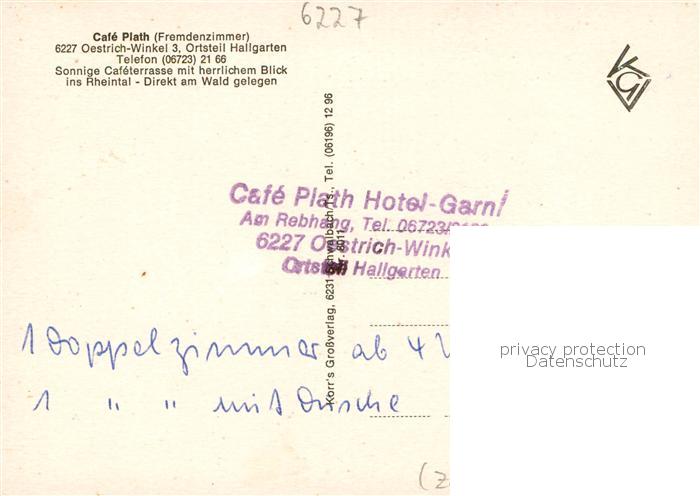 6227
Café Plath (Fremdenzimmer)
6227 Oestrich-Winkel 3, Ortsteil Hallgarten
Telefon (06723) 21 66
Sonnige Caféterrasse mit herrlichem Blick
ins Rheintal - Direkt am Wald gelegen
KGV
Korr's Großverlag, 6231 Schwalbach/Ts., Tel. (06196) 12 96
Café Plath Hotel-Garni
Am Rebhang, Tel. 06723/
6227 Oestrich-Wink
Ortsteil Hallgarten
1 Doppelzimmer ab 4
1 " " mit Dusche
privacy protection
Datenschutz
(z